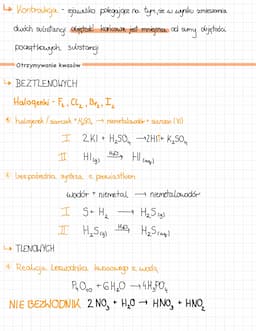 ↳ Kontrakcja - zjawisko polegające na tym, że w wyniku zmieszania
dwóch substancji objętość końcowa jest mniejsza od sumy objętości
początkowych substancji
Otrzymywanie kwasów
↳ BEZTLENOWYCH
Halogenki - F₂, Cl₂, Br₂, I₂
halogenek / siarczek + H₂SO₄ → niemetalowodór + siarczan (VI)
I 2KI + H₂SO₄ → 2HI↑ + K₂SO₄
II HI(g) H₂O→ HI(aq)
bezpośrednia synteza z pierwiastków
wodór + niemetal → niemetalowodór
I S + H₂ → H₂S(g)
II H₂S(g) H₂O→ H₂S(aq)
↳ TLENOWYCH
Reakcja bezwodnika kwasowego z wodą
P₄O₁₀ + 6H₂O → 4H₃PO₄
NIE BEZWODNIK 2NO₂ + H₂O → HNO₃ + HNO₂